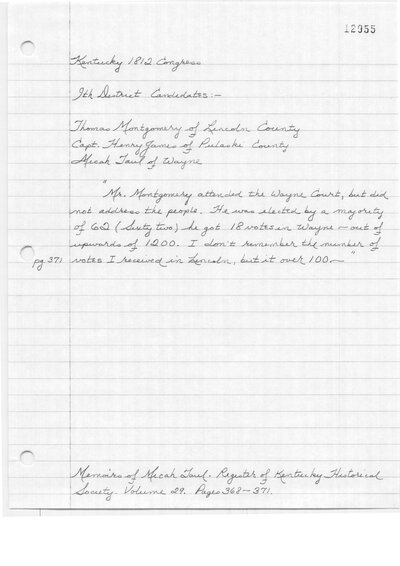 12955
Kentucky 1812 Congress
9th District Candidates:-
Thomas Montgomery of Lincoln County
Capt. Henry James of Pulaski County
Micah Taul of Wayne
"Mr. Montgomery attended the Wayne Court, but did
not address the people. He was elected by a majority
of 62 (sixty two) he got 18 votes in Wayne - out of
upwards of 1200. I don't remember the number of
pg. 371 votes I received in Lincoln, but it over 100.-"
Memoirs of Micah Taul. Register of Kentucky Historical
Society. Volume 29. Pages 368-371.